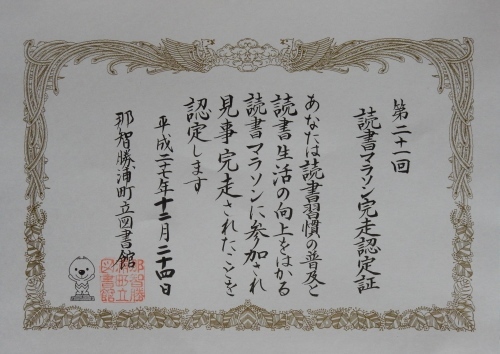 第二十一回
読書マラソン完走認定証
あなたは読書習慣の普及と
読書生活の向上をはかる
読書マラソンに参加され
見事完走されたことを
認定します
平成二十七年十二月二十四日
那智勝浦町立図書館